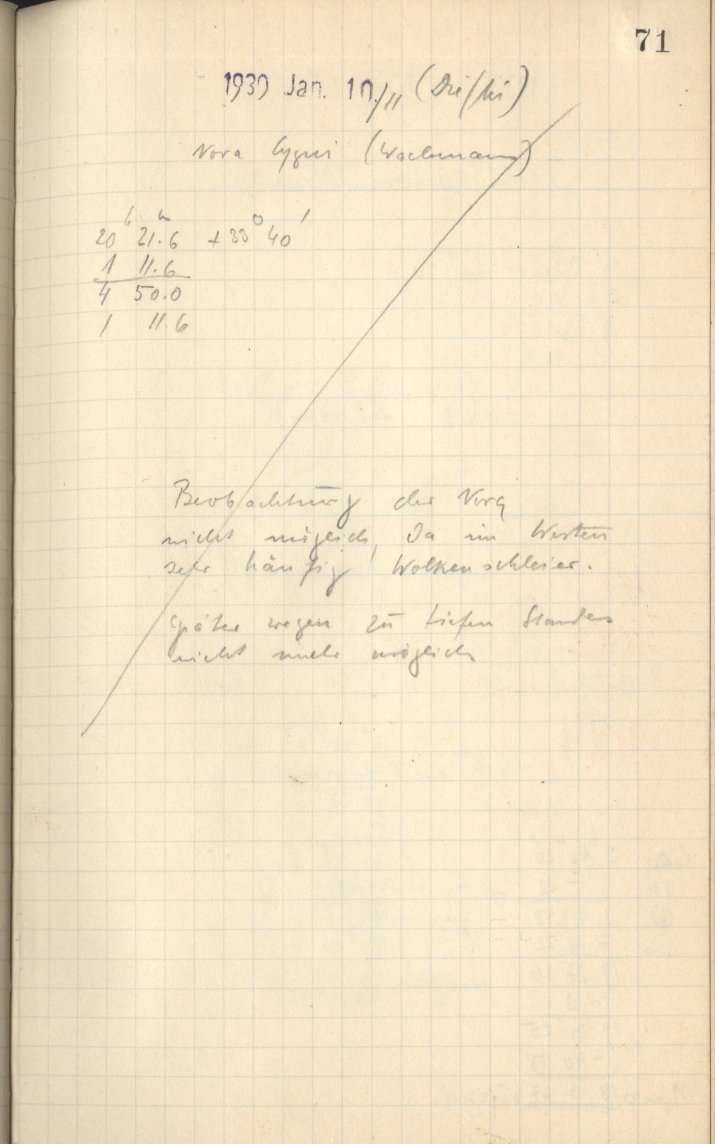 71
1939 Jan. 10./11 (Die/Mi)
Nova Cygni (Wachmann)
20ʰ 21ᵐ.6 +33° 40′
1 11.6
4 50.0
1 11.6
Beobachtung der Nova
nicht möglich, da im Westen
sehr häufig Wolkenschleier.
Später wegen zu tiefen Standes
nicht mehr möglich